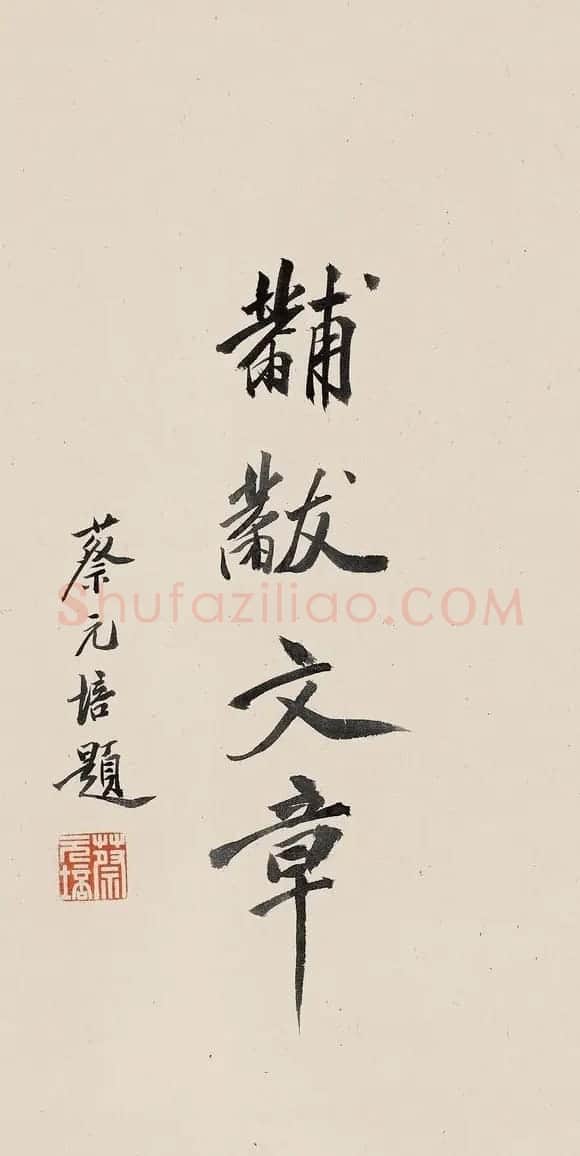 黼黻文章
蔡元培題
蔡元培
Shufaziliao.COM